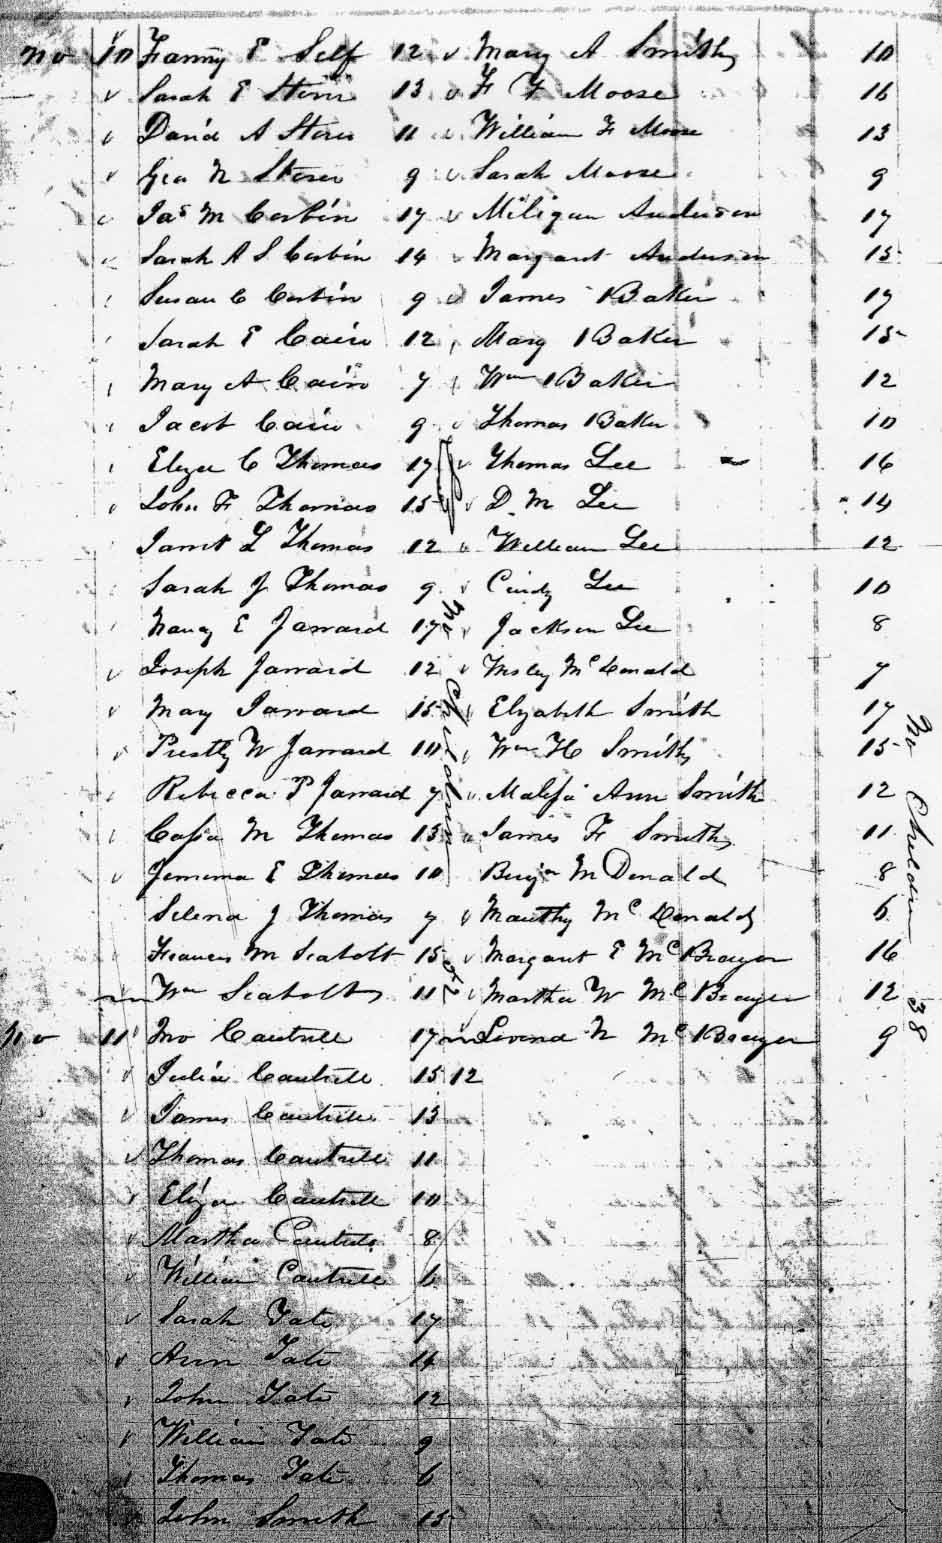 No 10 Fanny E Self 12 Mary A Smith 10
Sarah E Stover 13 F F Moose 16
David A Stover 11 William F Moose 13
Geo N Stover 9 Sarah Moose 9
Jas M Corbin 17 Miligan Anderson 17
Sarah A S Corbin 14 Margaret Anderson 15
Susan C Corbin 9 James Baker 17
Sarah E Cain 12 Mary Baker 15
Mary A Cain 7 Wm Baker 12
Jacob Cain 9 Thomas Baker 10
Eliza C Thomas 17 Thomas Lee 16
John F Thomas 15 D. M Lee 14
L Thomas 12 William Lee 12
Sarah J Thomas 9 Cindy Lee 10
Nancy E Jarrard 17 Jackson Lee 8
Joseph Jarrard 12 McDonald 7
May Jarrard 15 Elizabeth Smith 17
W Jarrard 10 Wm H Smith 15
Rebecca P Jarrard 7 Ann Smith 12
M Thomas 13 James F Smith 11
Jemima E Thomas 10 Benjn McDonald 8
Selena J Thomas 7 McDonald 6
Frances M Seabolt 15 Margaret E McBrayer 16
Wm Seabolt 11 Martha W McBrayer 12
No 11 Jno Cantrell 17 N McBrayer 9
Julia Cantrell 15 12
James Cantrell 13
Thomas Cantrell 11
Eliza Cantrell 10
Martha Cantrell 8
William Cantrell 6
Sarah Tate 17
Ann Tate 14
John Tate 12
William Tate 9
Thomas Tate 6
John Smith 15
No Children 52
No Children 38